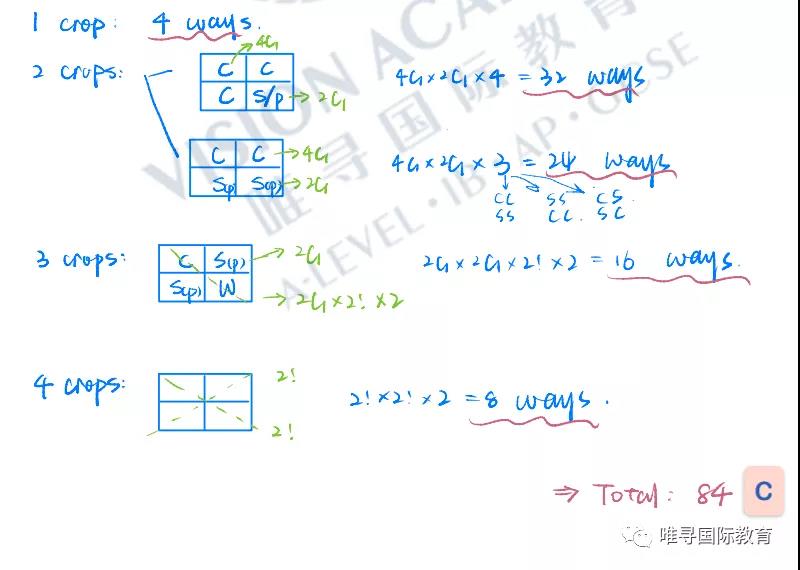 1 crop: 4 ways.
4C1
2 crops:
C C
C S/p → 2C1
4C1 × 2C1 × 4 = 32 ways
C C → 4C1
S(p) S(p) → 2C1
4C1 × 2C1 × 3 = 24 ways
CC SS CS
SS CC SC
3 crops:
C S(p) → 2C1
S(p) W → 2C1 × 2! × 2
2C1 × 2C1 × 2! × 2 = 16 ways.
4 crops:
2!
2!
2! × 2! × 2 = 8 ways.
⇒ Total: 84 C
VISION ACADEMY
唯寻国际教育
A-LEVEL · IB · AP · GCSE
唯寻国际教育